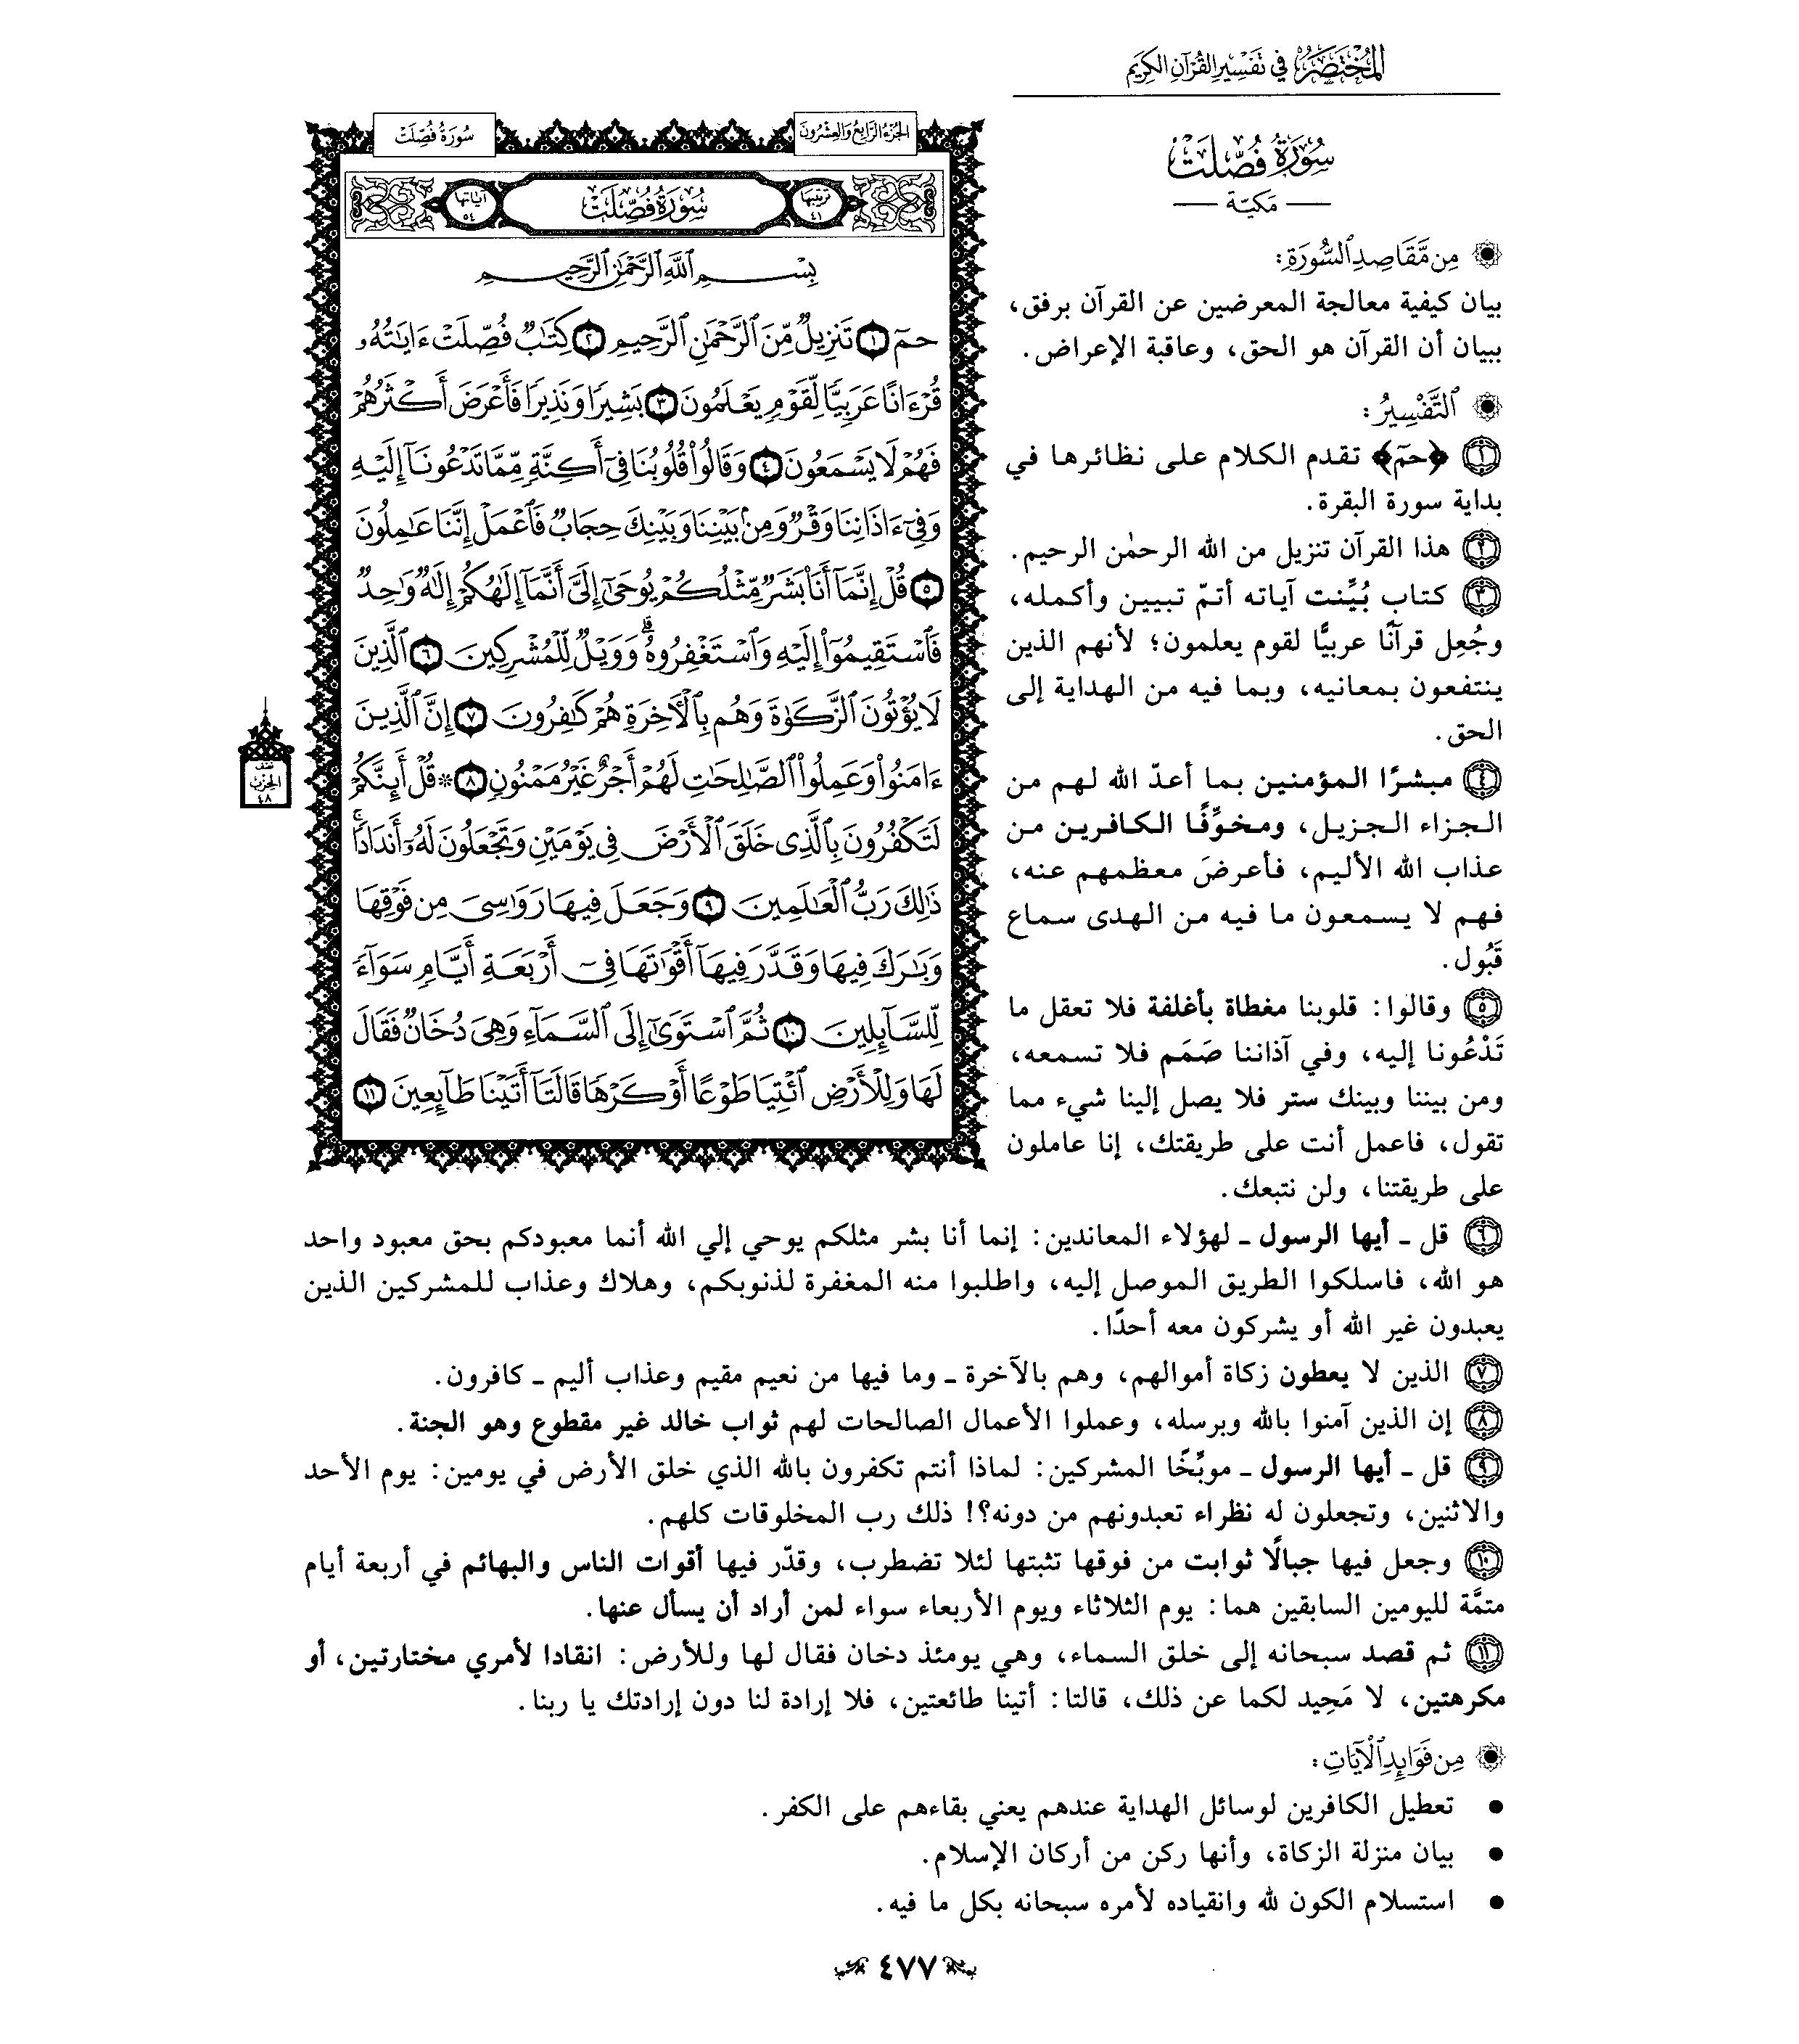 المختصر في تفسير القرآن الكريم
سُورَةُ فُصِّلَتْ
— مَكيّة —
مِن مَّقَاصِدِ السُّورَةِ:
بيان كيفية معالجة المعرضين عن القرآن برفق،
ببيان أن القرآن هو الحق، وعاقبة الإعراض.
التَّفْسِيرُ:
١ ﴿حمٓ﴾ تقدم الكلام على نظائرها في
بداية سورة البقرة.
٢ هذا القرآن تنزيل من الله الرحمٰن الرحيم.
٣ كتاب بُيِّنت آياته أتمّ تبيين وأكمله،
وجُعِل قرآنًا عربيًّا لقوم يعلمون؛ لأنهم الذين
ينتفعون بمعانيه، وبما فيه من الهداية إلى
الحق.
٤ مبشرًا المؤمنين بما أعدّ الله لهم من
الجزاء الجزيل، ومخوِّفًا الكافرين من
عذاب الله الأليم، فأعرضَ معظمهم عنه،
فهم لا يسمعون ما فيه من الهدى سماع
قَبُول.
٥ وقالوا: قلوبنا مغطاة بأغلفة فلا تعقل ما
تَدْعُونا إليه، وفي آذاننا صَمَم فلا تسمعه،
ومن بيننا وبينك ستر فلا يصل إلينا شيء مما
تقول، فاعمل أنت على طريقتك، إنا عاملون
على طريقتنا، ولن نتبعك.
الجُزْءُ الرَّابِعُ وَالعِشْرُونَ
سُورَةُ فُصِّلَتْ
ترتيبها ٤١
سُورَةُ فُصِّلَتْ
آياتها ٥٤
بِسْمِ ٱللَّهِ ٱلرَّحْمَٰنِ ٱلرَّحِيمِ
حمٓ ١ تَنزِيلٌ مِّنَ ٱلرَّحْمَٰنِ ٱلرَّحِيمِ ٢ كِتَٰبٌ فُصِّلَتْ ءَايَٰتُهُۥ
قُرْءَانًا عَرَبِيًّا لِّقَوْمٍ يَعْلَمُونَ ٣ بَشِيرًا وَنَذِيرًا فَأَعْرَضَ أَكْثَرُهُمْ
فَهُمْ لَا يَسْمَعُونَ ٤ وَقَالُوا۟ قُلُوبُنَا فِىٓ أَكِنَّةٍ مِّمَّا تَدْعُونَآ إِلَيْهِ
وَفِىٓ ءَاذَانِنَا وَقْرٌ وَمِنۢ بَيْنِنَا وَبَيْنِكَ حِجَابٌ فَٱعْمَلْ إِنَّنَا عَٰمِلُونَ
٥ قُلْ إِنَّمَآ أَنَا۠ بَشَرٌ مِّثْلُكُمْ يُوحَىٰٓ إِلَىَّ أَنَّمَآ إِلَٰهُكُمْ إِلَٰهٌ وَٰحِدٌ
فَٱسْتَقِيمُوٓا۟ إِلَيْهِ وَٱسْتَغْفِرُوهُ ۗ وَوَيْلٌ لِّلْمُشْرِكِينَ ٦ ٱلَّذِينَ
لَا يُؤْتُونَ ٱلزَّكَوٰةَ وَهُم بِٱلْءَاخِرَةِ هُمْ كَٰفِرُونَ ٧ إِنَّ ٱلَّذِينَ
ءَامَنُوا۟ وَعَمِلُوا۟ ٱلصَّٰلِحَٰتِ لَهُمْ أَجْرٌ غَيْرُ مَمْنُونٍ ٨ * قُلْ أَئِنَّكُمْ
لَتَكْفُرُونَ بِٱلَّذِى خَلَقَ ٱلْأَرْضَ فِى يَوْمَيْنِ وَتَجْعَلُونَ لَهُۥٓ أَندَادًا ۚ
ذَٰلِكَ رَبُّ ٱلْعَٰلَمِينَ ٩ وَجَعَلَ فِيهَا رَوَٰسِىَ مِن فَوْقِهَا
وَبَٰرَكَ فِيهَا وَقَدَّرَ فِيهَآ أَقْوَٰتَهَا فِىٓ أَرْبَعَةِ أَيَّامٍ سَوَآءً
لِّلسَّآئِلِينَ ١٠ ثُمَّ ٱسْتَوَىٰٓ إِلَى ٱلسَّمَآءِ وَهِىَ دُخَانٌ فَقَالَ
لَهَا وَلِلْأَرْضِ ٱئْتِيَا طَوْعًا أَوْ كَرْهًا قَالَتَآ أَتَيْنَا طَآئِعِينَ ١١
نصف
الحزب
٤٨
٦ قل ـ أيها الرسول ـ لهؤلاء المعاندين: إنما أنا بشر مثلكم يوحي إلي الله أنما معبودكم بحق معبود واحد
هو الله، فاسلكوا الطريق الموصل إليه، واطلبوا منه المغفرة لذنوبكم، وهلاك وعذاب للمشركين الذين
يعبدون غير الله أو يشركون معه أحدًا.
٧ الذين لا يعطون زكاة أموالهم، وهم بالآخرة ـ وما فيها من نعيم مقيم وعذاب أليم ـ كافرون.
٨ إن الذين آمنوا بالله وبرسله، وعملوا الأعمال الصالحات لهم ثواب خالد غير مقطوع وهو الجنة.
٩ قل ـ أيها الرسول ـ موبِّخًا المشركين: لماذا أنتم تكفرون بالله الذي خلق الأرض في يومين: يوم الأحد
والاثنين، وتجعلون له نظراء تعبدونهم من دونه؟! ذلك رب المخلوقات كلهم.
١٠ وجعل فيها جبالًا ثوابت من فوقها تثبتها لئلا تضطرب، وقدّر فيها أقوات الناس والبهائم في أربعة أيام
متمَّة لليومين السابقين هما: يوم الثلاثاء ويوم الأربعاء سواء لمن أراد أن يسأل عنها.
١١ ثم قصد سبحانه إلى خلق السماء، وهي يومئذ دخان فقال لها وللأرض: انقادا لأمري مختارتين، أو
مكرهتين، لا مَحِيد لكما عن ذلك، قالتا: أتينا طائعتين، فلا إرادة لنا دون إرادتك يا ربنا.
مِن فَوَائِدِ الْآيَاتِ:
• تعطيل الكافرين لوسائل الهداية عندهم يعني بقاءهم على الكفر.
• بيان منزلة الزكاة، وأنها ركن من أركان الإسلام.
• استسلام الكون لله وانقياده لأمره سبحانه بكل ما فيه.
٤٧٧